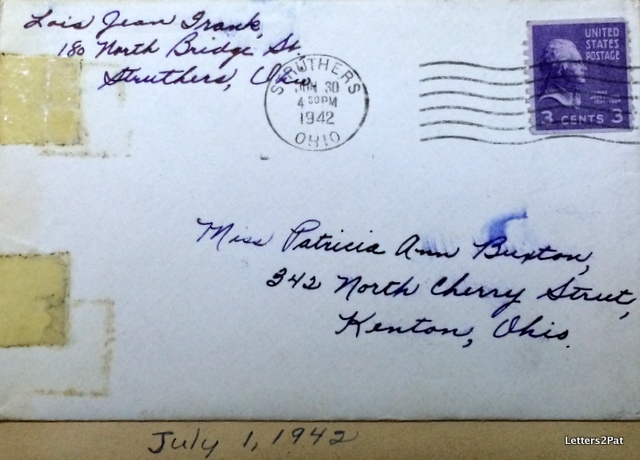 Lois Jean Frank,
180 North Bridge St.
Struthers, Ohio
STRUTHERS
JUN 30
4 30PM
1942
OHIO
UNITED
STATES
POSTAGE
3 CENTS 3
Miss Patricia Ann Buxton,
342 North Cherry Street,
Kenton, Ohio.
July 1, 1942
Letters2Pat